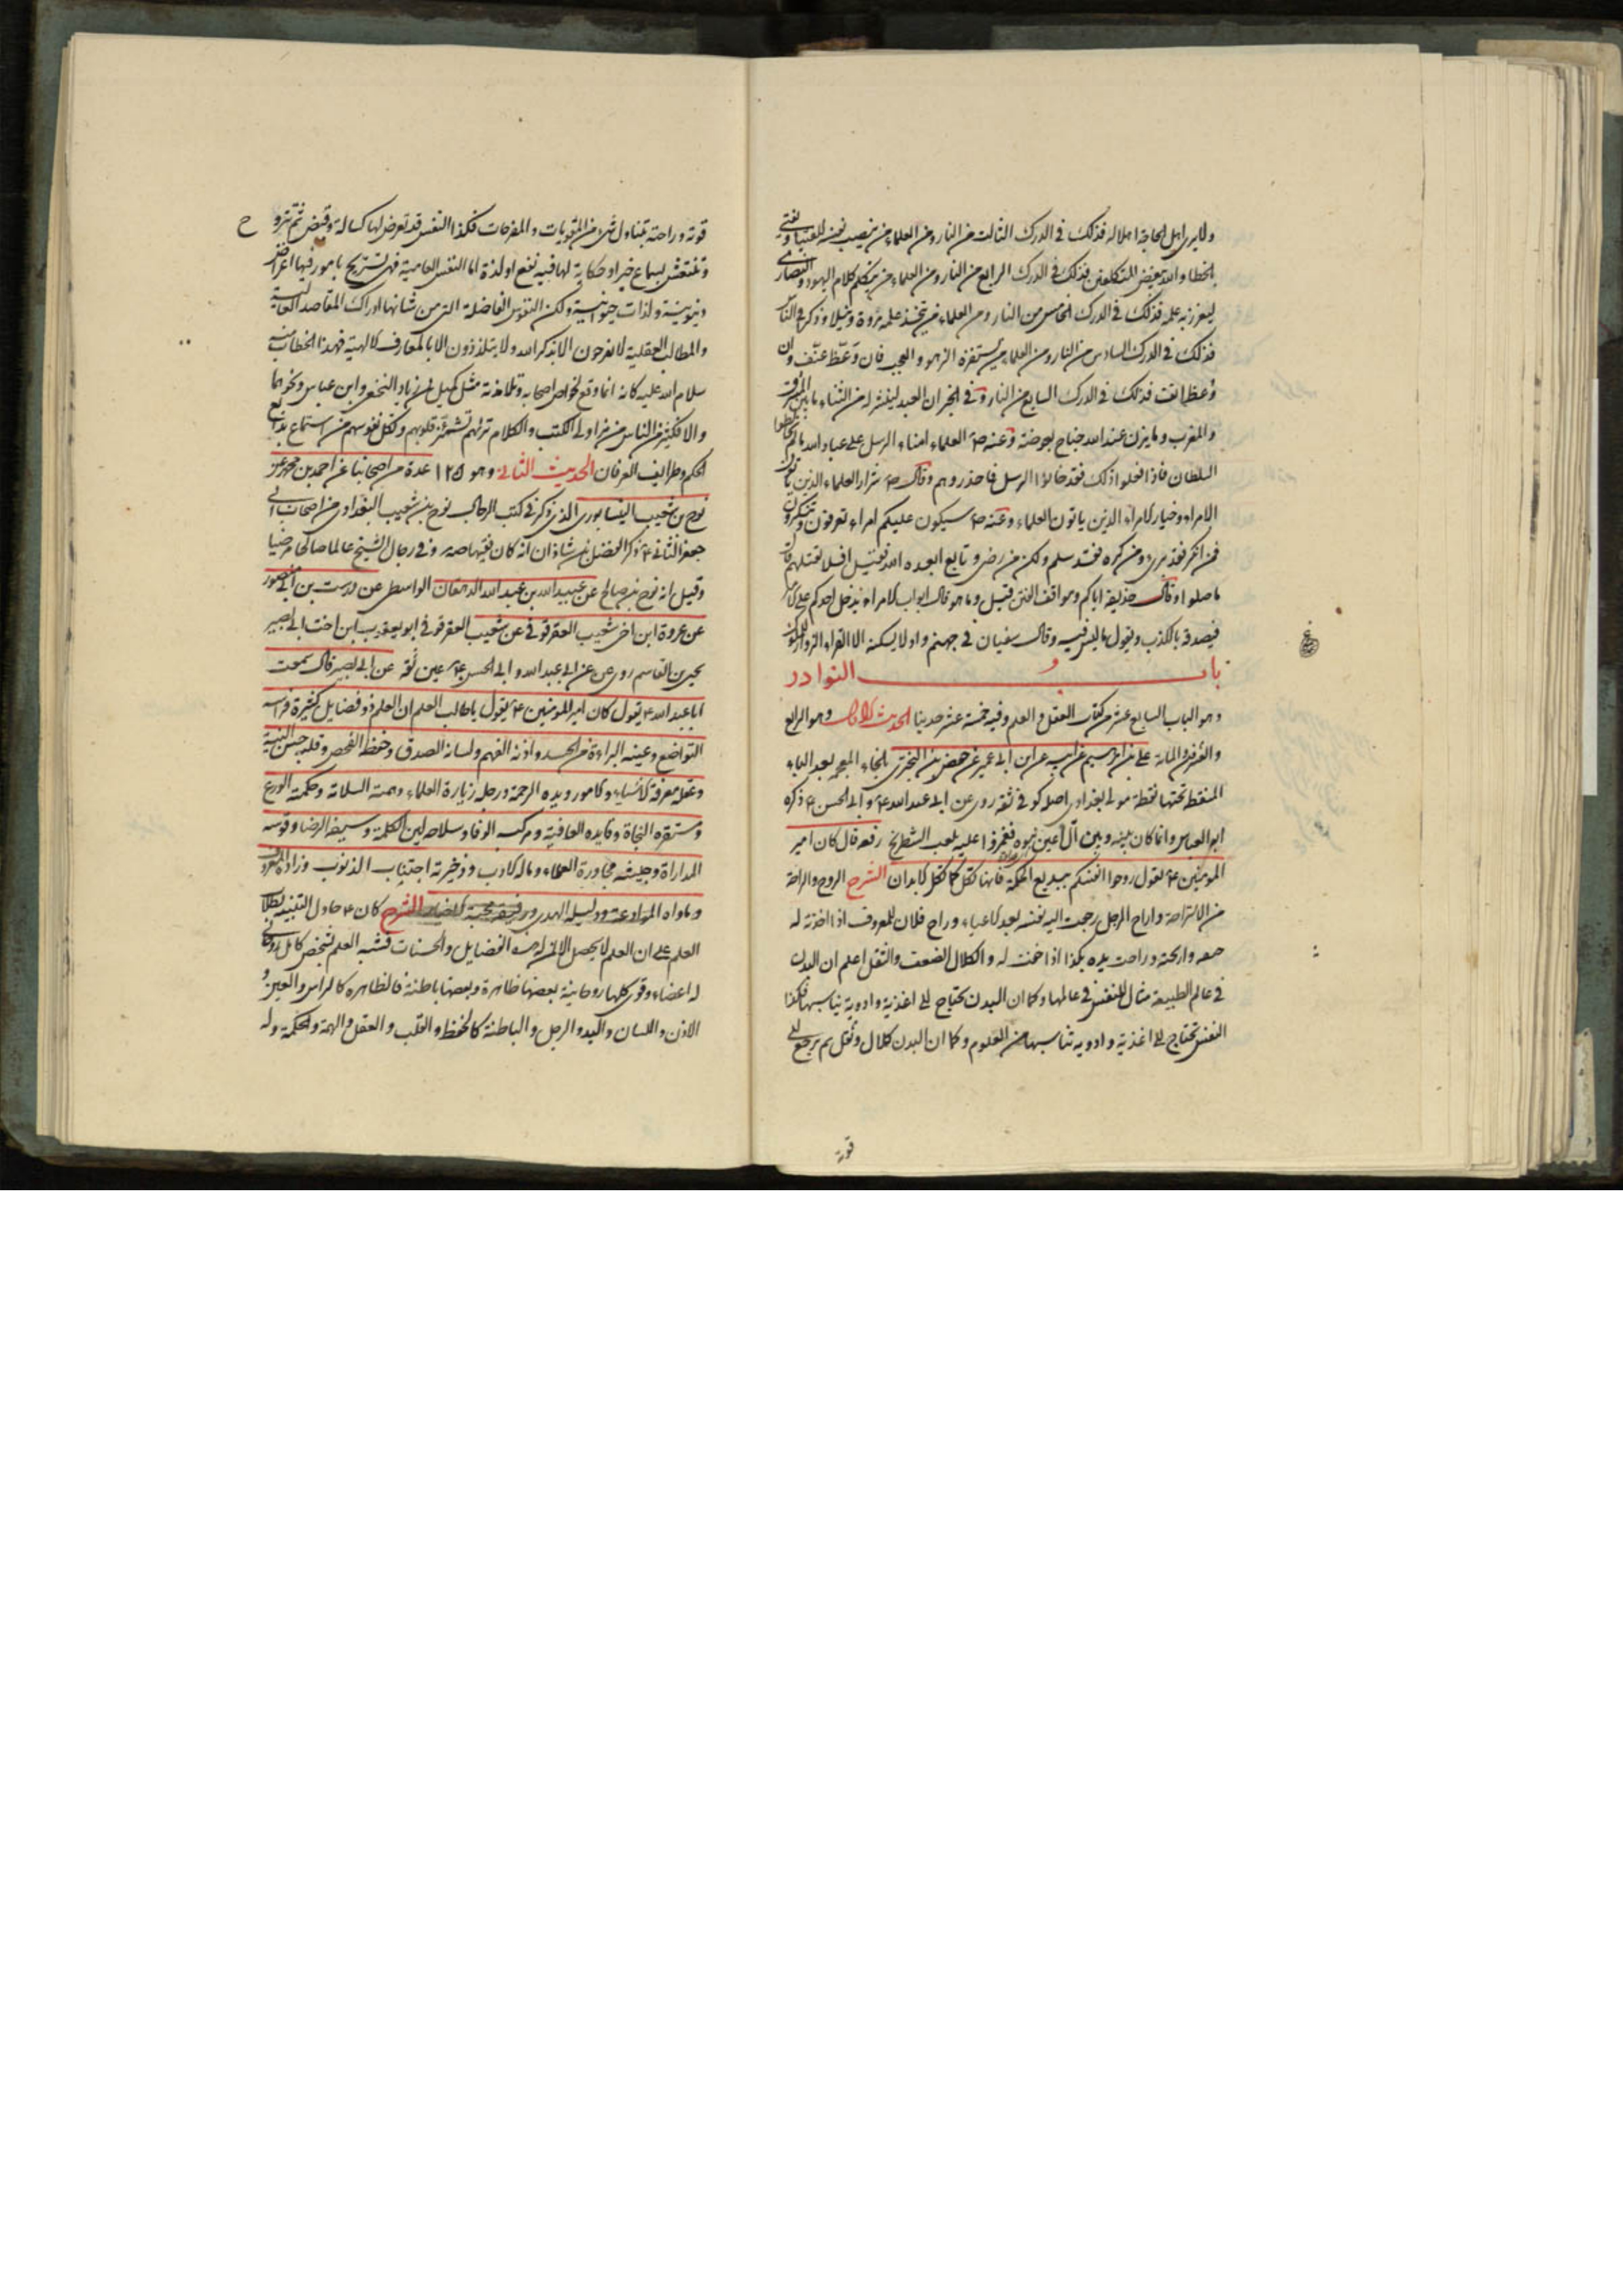 ولا يرى اهل الحاجة اهلا له فذلك فى الدرك الثالث من النار ومن العلماء من ينصب نفسه للفتيا ويفتى
بالخطا والله يبغض المتكلفين فذلك فى الدرك الرابع من النار ومن العلماء من يتكلم كلام اليهود والنصارى
ليعزز به علمه فذلك فى الدرك الخامس من النار ومن العلماء من يتخذ علمه مروة ونبلا وذكرا فى الناس
فذلك فى الدرك السادس من النار ومن العلماء من يستفزه الزهو والعجب فان وعظ عنف وان
وعظ انف فذلك فى الدرك السابع من النار وفى الخبر ان العبد لينشر له من الثناء ما بين المشرق
والمغرب وما يزن عند الله جناح بعوضة وعنه ص العلماء امناء الرسل على عباد الله ما لم يخالطوا
السلطان فاذا فعلوا ذلك فقد خانوا الرسل فاحذروهم وقال ص شرار العلماء الذين ياتون
الامراء وخيار الامراء الذين ياتون العلماء وعنه ص سيكون عليكم امراء تعرفون وتنكرون
فمن انكر فقد برئ ومن كره فقد سلم ولكن من رضى وتابع ابعده الله فقيل افلا نقتلهم قال
ما صلوا وقال حذيفة اياكم ومواقف الفتن قيل وما هو قال ابواب الامراء يدخل احدكم على الامير
فيصدق بالكذب ويقول ما ليس فيه وقال سفيان فى جهنم واد لا يسكنه الا القراء الزوارون للملوك
باب النوادر
وهو الباب السابع عشر من كتاب العقل والعلم وفيه خمسة عشر حديثا الحديث الاول وهو الرابع
والعشرون المائة على بن ابرهيم عن ابيه عن ابن ابى عمير عن حفص بن البخترى بالخاء المعجمة بعد الباء
المنقط تحتها نقطة مولى بغدادى اصله كوفى ثقة روى عن ابى عبد الله ع وابى الحسن ع ذكره
ابو العباس وانما كان بينه وبين آل اعين نبوة فغمزوا عليه بلعب الشطرنج رفعه قال كان امير
المؤمنين ع يقول روحوا انفسكم ببديع الحكمة فانها تكل كما تكل الابدان الشرح الروح والراحة
من الاستراحة واراح الرجل رجعت اليه نفسه بعد الاعياء وراح فلان للمعروف اذا اخذته له
خفة واريحية وراحت يده بكذا اذا خفت له والكلال الضعف والثقل اعلم ان البدن
فى عالم الطبيعة مثال للنفس فى عالمها وكما ان البدن يحتاج الى اغذية وادوية يناسبها فكذا
النفس تحتاج الى اغذية وادوية تناسبها من العلوم وكما ان البدن كلال وثقل ثم يرجع الى
قوته
قوته وراحته بتناول شئ من المقويات والمفرحات فكذا النفس قد تعرض لها كسالة وقبض ثم تتروح
وتنتعش بسماع خبر او حكاية لها فيه نفع او لذة اما النفس العامية فهى تستريح بامور فيها اغراض
دنيوية ولذات حيوانية ولكن النفوس الفاضلة التى من شانها ادراك المقاصد العالية
والمطالب العقلية لا يفرحون الا بذكر الله ولا يتلذذون الا بالمعارف الالهية فهذا الخطاب منه
سلام الله عليه كانه انما وقع لخواص اصحابه وتلامذته مثل كميل بن زياد النخعى وابن عباس ونحوهما
والا فكثير من الناس من مزاولى الكتب والكلام تراهم تشمئز قلوبهم وتكل نفوسهم من استماع بدايع
الحكم وطرايف العرفان الحديث الثانى وهو ١٢٥ عدة من اصحابنا عن احمد بن محمد عن
نوح بن شعيب النيسابورى الذى ذكر فى كتب الرجال نوح بن شعيب البغدادى من اصحاب ابى
جعفر الثانى ع ذكر الفضل بن شاذان انه كان فقيها صه وفى رجال الشيخ عالما صالحا مرضيا
وقيل انه نوح بن صالح عن عبيد الله بن عبد الله الدهقان الواسطى عن درست بن ابى منصور
عن عروة ابن اخى شعيب العقرقوفى عن شعيب العقرقوفى ابو يعقوب ابن اخت ابى بصير
يحيى بن القاسم روى عن ابى عبد الله وابى الحسن ع عين ثقة عن ابى بصير قال سمعت
ابا عبد الله ع يقول كان امير المؤمنين ع يقول يا طالب العلم ان العلم ذو فضايل كثيرة فراسه
التواضع وعينه البراءة من الحسد واذنه الفهم ولسانه الصدق وحفظه الفحص وقلبه حسن النية
وعقله معرفة الاشياء والامور ويده الرحمة ورجله زيارة العلماء وهمته السلامة وحكمته الورع
ومستقره النجاة وقايده العافية ومركبه الوفا وسلاحه لين الكلمة وسيفه الرضا وقوسه
المداراة وجيشه محاورة العلماء وماله الادب وذخيرته اجتناب الذنوب وزاده المعروف
وماواه الموادعة ودليله الهدى ورفيقه محبة الاخيار الشرح كان ع حاول التنبيه لطلاب
العلم على ان العلم لا يحصل الا الفضايل والحسنات فشبه العلم بشخص كامل روحانى
له اعضاء وقوى كلها روحانية بعضها ظاهرة وبعضها باطنة فالظاهرة كالراس والعين و
الاذن واللسان واليد والرجل والباطنة كالحفظ والقلب والعقل والهمة والحكمة وله